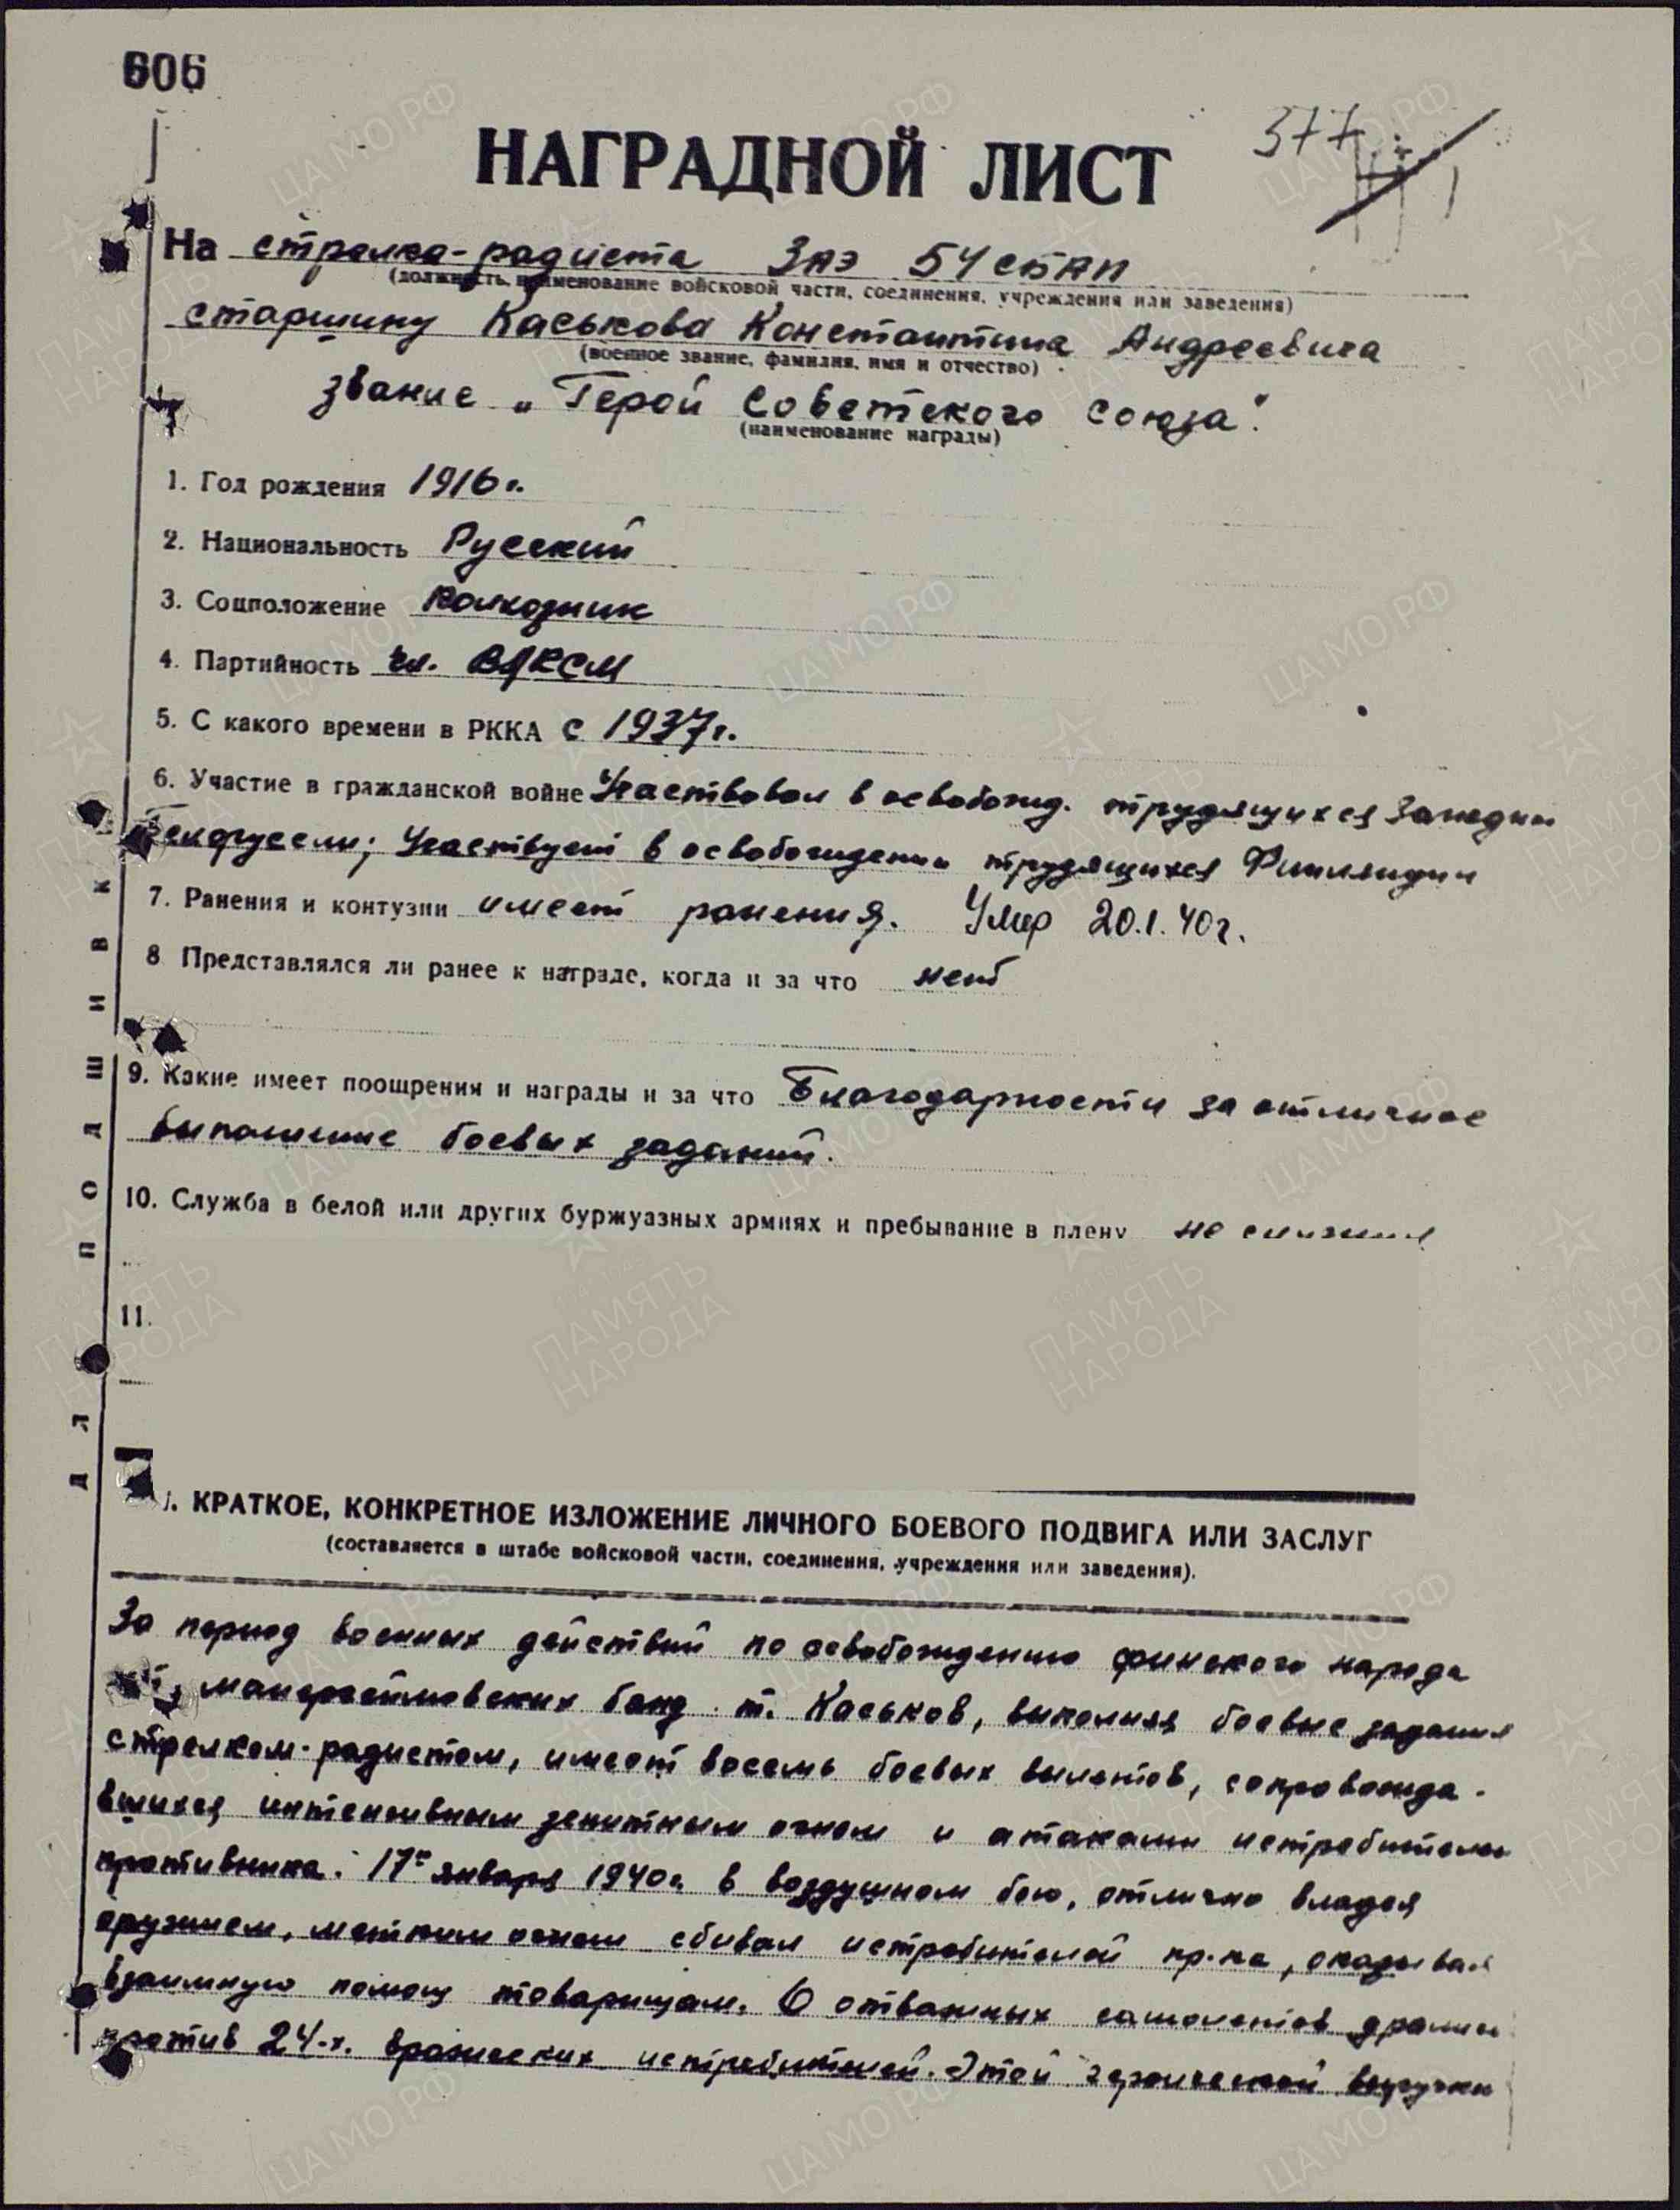 606
377
НАГРАДНОЙ ЛИСТ
На стрелка-радиста 3АЭ 54СБАП
(должность, наименование войсковой части, соединения, учреждения или заведения)
старшину Каськова Константина Андреевича
(военное звание, фамилия, имя и отчество)
звание „Герой Советского Союза".
(наименование награды)
1. Год рождения 1916 г.
2. Национальность Русский
3. Соцположение колхозник
4. Партийность чл. ВЛКСМ
5. С какого времени в РККА с 1937 г.
6. Участие в гражданской войне Участвовал в освобожд. трудящихся Западн
Белоруссии; Участвует в освобождении трудящихся Финляндии
7. Ранения и контузии имеет ранения. Умер 20.1.40 г.
8 Представлялся ли ранее к награде, когда и за что нет
9. Какие имеет поощрения и награды и за что Благодарности за отличное
выполнение боевых заданий.
10. Служба в белой или других буржуазных армиях и пребывание в плену не служил
11.
I. КРАТКОЕ, КОНКРЕТНОЕ ИЗЛОЖЕНИЕ ЛИЧНОГО БОЕВОГО ПОДВИГА ИЛИ ЗАСЛУГ
(составляется в штабе войсковой части, соединения, учреждения или заведения).
За период военных действий по освобождению финского народа
от маннергеймовских банд т. Каськов, выполняя боевые задания
стрелком-радистом, имеет восемь боевых вылетов, сопровожда-
вшихся интенсивным зенитным огнем и атаками истребителей
противника. 17го января 1940 г. в воздушном бою, отлично владея
оружием, метким огнем сбивал истребителей пр-ка, оказывая
взаимную помощь товарищам. 6 отважных самолетов дрались
против 24-х вражеских истребителей. Этой героической выручки
ДЛЯ ПОДШИВКИ
ЦАМО.РФ
ПАМЯТЬ НАРОДА